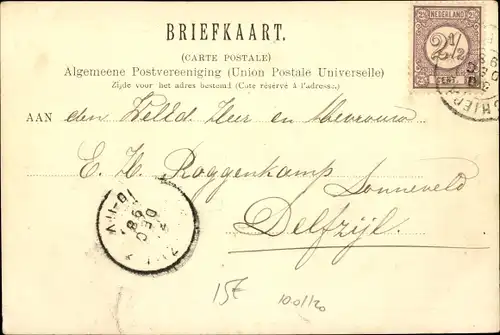 BRIEFKAART.
(CARTE POSTALE)
Algemeene Postvereeniging (Union Postale Universelle)
Zijde voor het adres bestemd (Côté réservé à l'adresse.)
NEDERLAND
2½
AAN den Weled Heer en Mevrouw
E. H. Roggenkamp
Sonneveld
Delfzijl.
DEC
98
15€
1001120